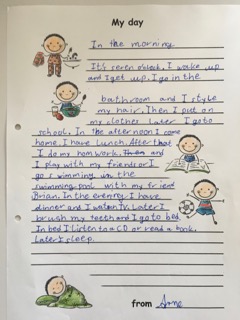 My day
In the morning
It's seven o'clock. I wake up
and I get up. I go in the
bathroom and I style
my hair. Then I put on
my clothes later I go to
school. In the afternoon I come
home. I have lunch. After that
I do my homwork. and
I play with my friends or I
go swimming in the
swimming pool with my friend
Brian. In the evening I have
dinner and I watch TV. Later I
brush my teeth and I go to bed.
In bed I listen to a CD or read a book.
Later I sleep.
from Arne